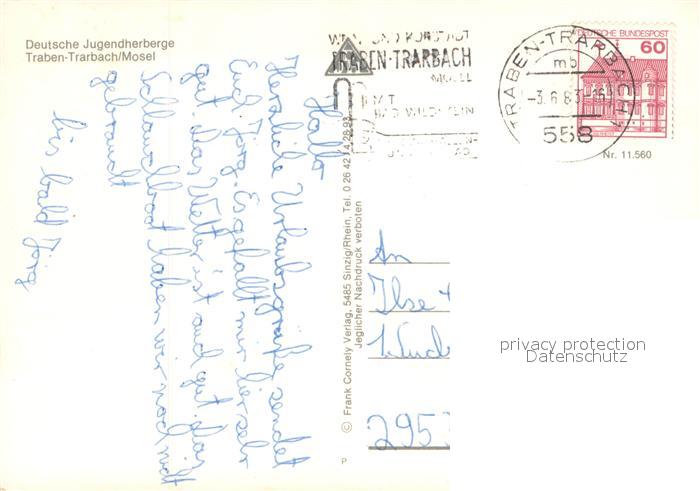 Deutsche Jugendherberge
Traben-Trarbach/Mosel
WEIN- UND KURSTADT
TRABEN-TRARBACH
MOSEL
MIT
BAD WILDSTEIN
TRABEN-TRARBACH 1
mb
-3.6.83-16
558
DEUTSCHE BUNDESPOST
60
Nr. 11.560
Hallo
Herzliche Urlaubsgrüße sendet
Euch Jörg. Es gefällt mir hier sehr
gut. das Wetter ist auch gut. das
Schlauchboot haben wir noch nicht
gebraucht
bis bald Jörg
© Frank Cornely Verlag, 5485 Sinzig/Rhein, Tel. 0 26 42 / 4 28 93
Jeglicher Nachdruck verboten
P
An
Ilse +
295
privacy protection
Datenschutz